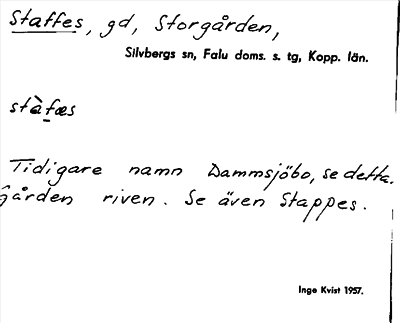 Staffes, gd, Storgården,
Silvbergs sn, Falu doms. s. tg, Kopp. län.
stàfæs
Tidigare namn Dammsjöbo, se detta.
Gården riven. Se även Stappes.
Inge Kvist 1957.